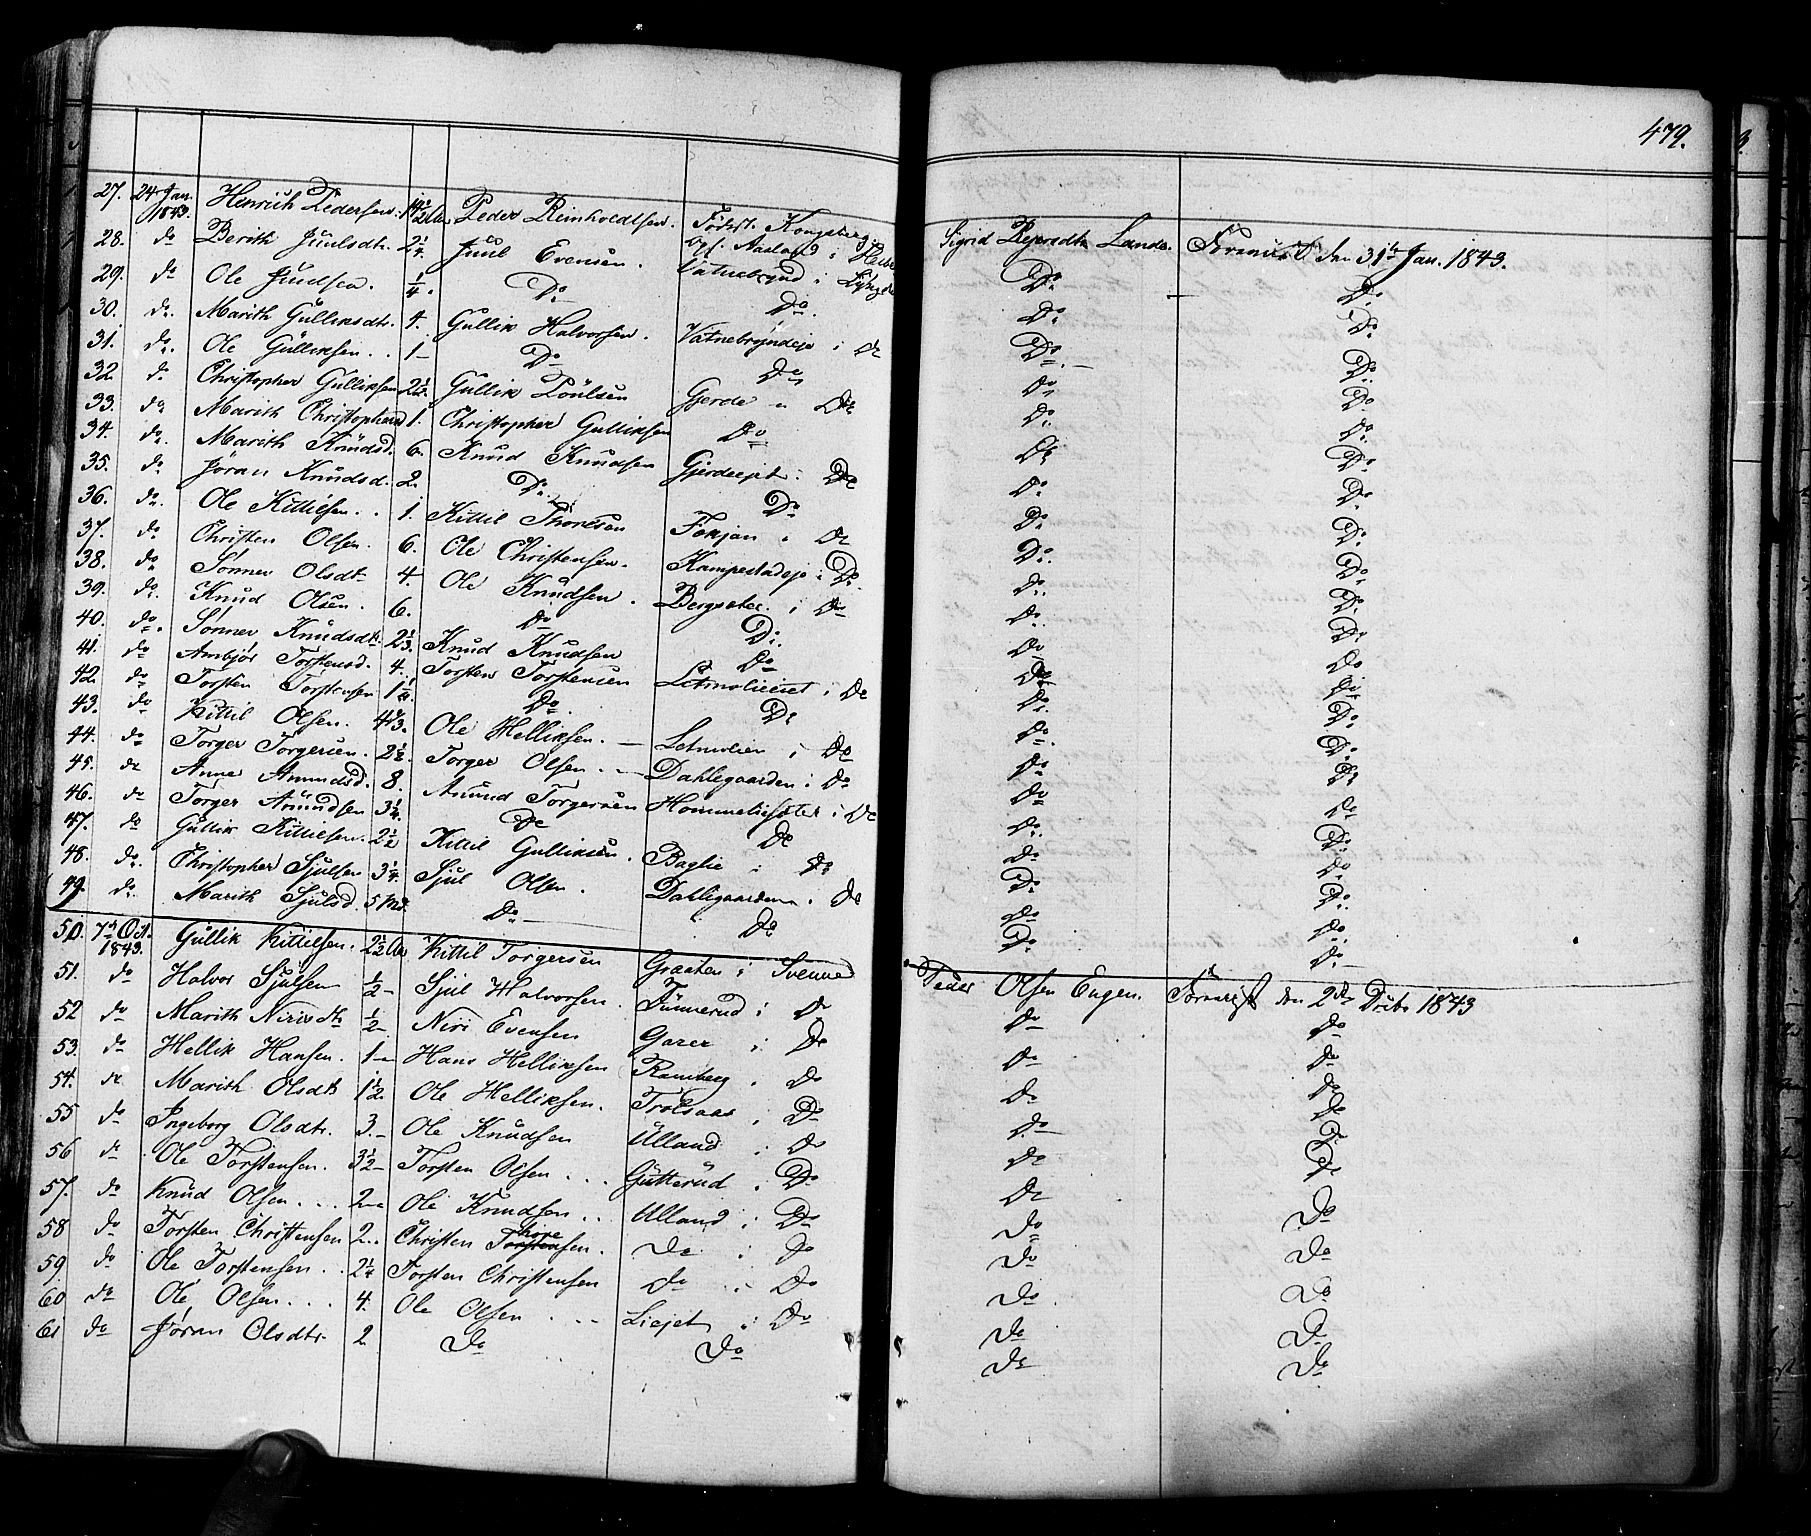 479.
27. 24 Jan. 1843. Henrich Pedersen. Peder Reinholdtsen. Født. Kongsberg Sigrid Lande. den 31te Jan. 1843.
28. do Berith Juulsdt. 2 1/4. Juul Evensen. Vatnebrynd i Do Do
29. do Ole Juulsen. 1/4. Do Do. Do Do
30. do. Marith Gulliksdtr. 4. Gullik Halvorsen. Vatnebryndeje i Do Do Do
31. do. Ole Gulliksen.. 1 Do Do Do Do
32 do Christopher Gulliksen 2 1/2. Gullik Poulsen Gjerde i Do Do Do
33. do Marith Christophersd 1. Christopher Gulliksen Do Do Do
34. do. Marith Knudsd. 6. Knud Knudsen Gjerdeejet i Do Do Do
35. do Jøran Knudsd. 2. Do. Do Do Do
36. do. Ole Kittilsen.. 1. Kittil Thoresen Fekjan i Do Do Do
37. do Christen Olsen. 6. Ole Christensen. Kampestadeje i Do Do Do
38. do Sønner Olsdt. 4. Ole Knudsen. Bergsater i Do Do Do
39. do. Knud Olsen. 6. Do Do Do Do
40. do. Sønner Knudsdt. 2 1/3. Knud Knudsen Do Do Do
41. do Ambjør Torstensd. 4. Torsten Torstensen i Do Do Do
42. do Torsten Torstensen Do. Do Do Do
43. do Kittil Olsen. Ole Helliksen. i Do Do Do
44. do Torger Torgersen. 2 1/2. Torger Olsen. Dahlegaarden i Do Do Do
45. do Anne Amundsd. 8. Amund Torgersen i Do Do Do
46. do Torger Amundsen 3 1/4. Do Do Do Do
47. do Gullik Kittilsen. 2 1/2 Kittil Gulliksen. Baglie i Do Do Do
48. do. Christopher Sjulsen 3 1/4. Sjul Olsen. Dahlegaarden i Do Do Do
49. do. Marith Sjulsd. 5 Md. Do Do Do Do
50. 7de Oct. 1843. Gullik Kittilsen. 2 1/2 Kittil Torgersen Graaten i Svenne Peder Olsen Engen. den 2den Octbr 1843
51. do Halvor Sjulsen 1/2 Sjul Halvorsen. Funnerud i Do Do Do
52 do Marith Nirisdtr 1/2 Niri Evensen i Do Do Do
53. do Hellik Hansen. 1 Hans Helliksen Ramberg i Do Do Do
54. do Marith Olsdtr 1 1/2. Ole Helliksen. i Do Do Do
55 do Ingeborg Olsdtr. 3. Ole Knudsen Ulland i Do Do Do
56 do Ole Torstensen. 3 1/2 Torsten Olsen... Gutterud i Do Do Do
57. do Knud Olsen... 2 Ole Knudsen.. Ulland i Do Do Do
58 do Torsten Christensen 2.. Christen Thoresen. Do i Do Do Do
59 do Ole Torstensen.. 2 1/4 Torsten Christensen Do i Do Do Do
60 do Ole Olsen... 4. Ole Olsen... Liejet i Do Do Do
61 do Jøran Olsdtr. 2 Do Do Do Do